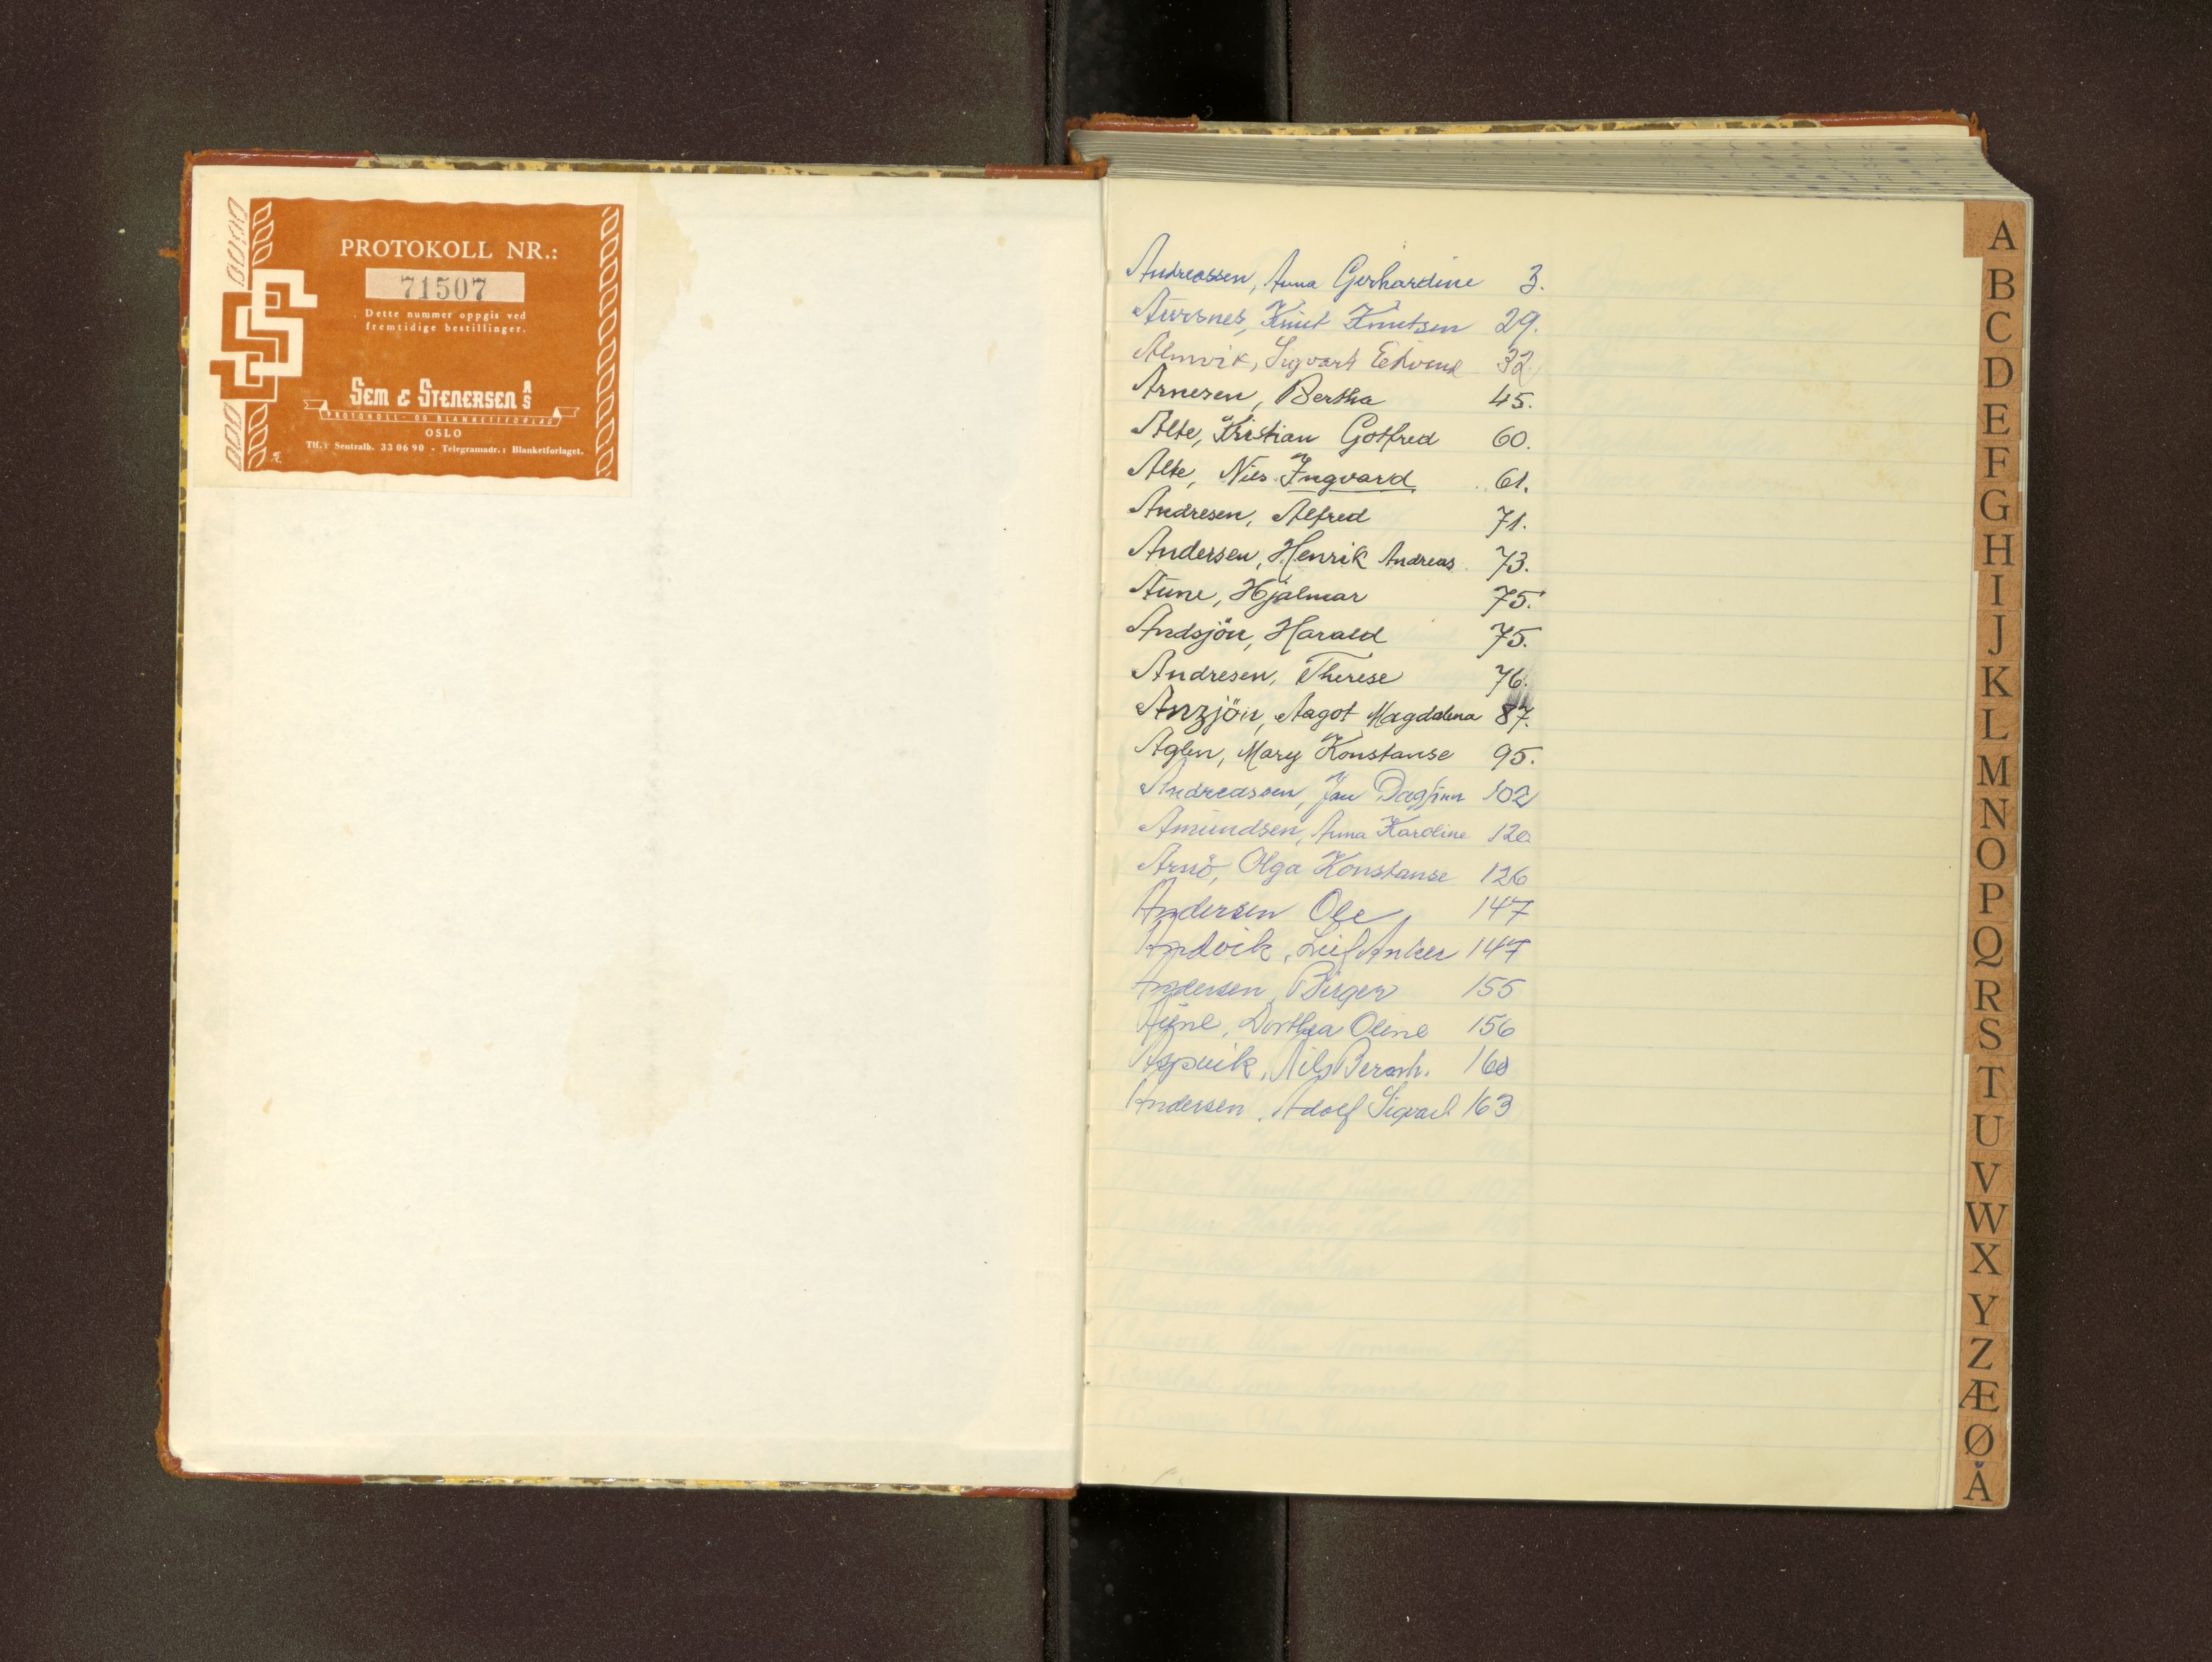 PROTOKOLL NR.:
71507
Dette nummer oppgis ved
fremtidige bestillinger.
SEM & STENERSEN A/S
PROTOKOLL- OG BLANKETTFORLAG
OSLO
Tlf.: Sentralb. 33 06 90 - Telegramadr.: Blanketforlaget.
Andreassen, Anna Gerhardine 3.
Aursnes, Knut Knutsen 29.
Almvik, Sigvart Edvind 32
Arnesen, Bertha 45.
Alte, Kristian Gotfred 60.
Alte, Nils Ingvard 61.
Andresen, Alfred 71.
Andersen, Henrik Andreas 73.
Aune, Hjalmar 75.
Andsjön, Harald 75.
Andresen, Therese 76.
Anzjön, Aagot Magdalena 87.
Aglen, Mary Konstanse 95.
Andreassen, Jan Dagfinn 102
Amundsen, Anna Karoline 120
Arnö, Olga Konstanse 126
Andersen Ole, 147
Andvik, Leif Anker 147
Andersen, Birger 155
Aune, Dorthea Oline 156
Aspvik, Nils Bernh. 160
Andersen, Adolf Sigvart 163
A
B
C
D
E
F
G
H
I
J
K
L
M
N
O
P
Q
R
S
T
U
V
W
X
Y
Z
Æ
Ø
Å